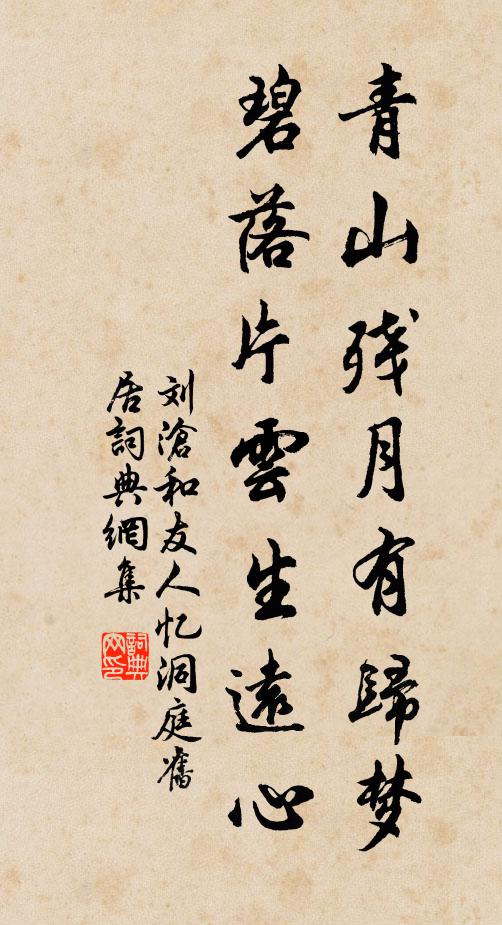 青山残月有歸梦
碧落片雲生遠心
刘滄和友人忆洞庭舊
居詞典網集
詞典
网印